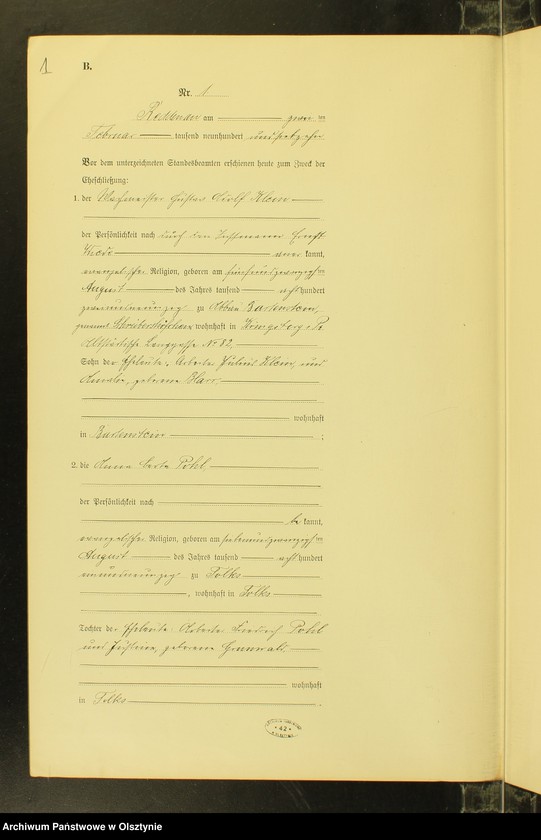 1
B.
Nr. 1
am zwei ten
Februar tausend neunhundert und siebzehn
Vor dem unterzeichneten Standesbeamten erschienen heute zum Zweck der
Eheschließung:
1. der Gustav Adolf Klein
der Persönlichkeit nach durch den
aner kannt,
evangelischer Religion, geboren am fünfundzwanzigsten
August des Jahres tausend acht hundert
zweiundneunzig zu Abbau Bartenstein,
genannt wohnhaft in Königsberg Pr
Altstädtische Langgasse No 82,
Sohn der Eheleute, Arbeiter Julius Klein und
Amalie, geborene
wohnhaft
in Bartenstein ;
2. die Anna Berta Pohl
der Persönlichkeit nach
be kannt,
evangelischer Religion, geboren am siebenundzwanzigsten
August des Jahres tausend acht hundert
neunundneunzig zu Tolks
, wohnhaft in Tolks
Tochter der Eheleute Arbeiter Friedrich Pohl
und Justine, geborene Grunwald
wohnhaft
in Tolks .
42
Archiwum Państwowe w Olsztynie